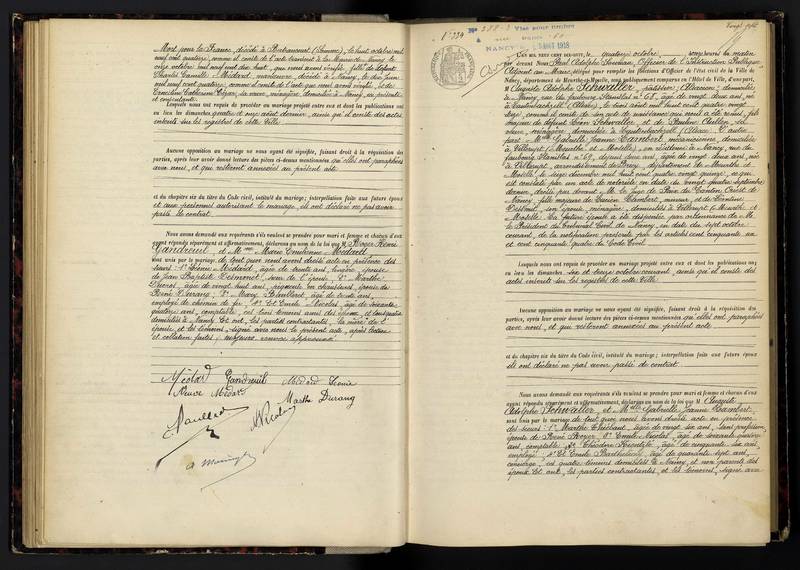 Mort pour la France, décédé à Rocbancourt (Somme), le huit octobre mil
neuf cent quatorze, comme il conste de l'acte transcrit à la Mairie de Nancy, le
onze octobre huit cent dix huit, que nous avons vérifié, fille de défunt
Charles Camille Médard, manœuvre, décédé à Nancy, le dix juin
mil neuf cent quatorze, comme il conste de l'acte que nous avons vérifié, et de
Caroline Catherine, sa veuve, ménagère, domiciliée à Nancy, ici présente
et consentante.
Lesquels nous ont requis de procéder au mariage projeté entre eux et dont les publications ont
eu lieu les dimanches quatre et onze août dernier, ainsi qu'il conste des actes
inscrits sur les registres de cette Ville.
Aucune opposition au mariage ne nous ayant été signifiée, faisant droit à la réquisition des
parties, après leur avoir donné lecture des pièces ci-dessus mentionnées qu'elles ont paraphées
avec nous, et qui resteront annexées au présent acte
et du chapitre six du titre du Code civil, intitulé du mariage ; interpellation faite aux futurs époux
et aux personnes autorisant le mariage, ils ont déclaré ne pas avoir
passé de contrat.
Nous avons demandé aux requérants s'ils veulent se prendre pour mari et femme et chacun d'eux
ayant répondu séparément et affirmativement, déclarons au nom de la loi que M. Roger René
Gandreuil et Mme Marie Emilienne Médard
sont unis par le mariage de tout quoi nous avons dressé acte en présence des
sieurs : 1° Léonie Médard, âgée de trente ans, lingère, épouse
de Jean Baptiste, sœur de l'épouse, 2° Marthe
âgée de vingt huit ans, piqueuse en chaussures, épouse de
René Durang, 3° Mary âgé de trente ans,
employé de chemin de fer, 4° et Emile Nicolas, âgé de soixante
quatorze ans, comptable, ces trois témoins amis des époux et tous quatre
domiciliés à Nancy. Et ont, les parties contractantes, la mère de l'
épouse, et les témoins, signé avec nous le présent acte, après lecture
et collation faites
Médard Gandreuil Médard Léonie
Veuve Médard
Marthe Durang
Nicolas
N° 288-3 Visé pour timbre
NANCY 1918
L'an mil neuf cent dix-huit, le quatorze octobre, onze heures du matin
par devant Nous Paul Adolphe Officier de l'Instruction Publique
Adjoint au Maire, délégué pour remplir les fonctions d'Officier de l'état civil de la Ville de
Nancy, département de Meurthe-et-Moselle, sont publiquement comparus en l'Hôtel de Ville, d'une part,
M. Auguste Adolphe Schwaller, Alsacien, domicilié
à Nancy, rue du faubourg Stanislas n° 68, âgé de vingt deux ans, né
à Lautenbachzell (Alsace), le trois août mil huit cent quatre vingt
seize, comme il conste de son acte de naissance qui nous a été remis, fils
majeur de défunt Léon Schwaller et de Pauline sa
veuve, ménagère, domiciliée à Lautenbachzell (Alsace). D'autre
part : Mlle Gabrielle Jeanne Lambert, mécanicienne, domiciliée
à Villerupt (Meurthe et Moselle), en résidence à Nancy, rue du
faubourg Stanislas n° 69, âgée de vingt deux ans, née
à Villerupt, arrondissement de Briey, département de Meurthe et
Moselle, le seize décembre mil huit cent quatre vingt quinze, ce qui
est constaté par un acte de notoriété en date du vingt quatre septembre
dernier, dressé par devant M. le Juge de Paix du Canton Ouest de
Nancy, fille majeure de Lucien Lambert, mineur, et de Léontine
son épouse, ménagère, domiciliés à Villerupt (Meurthe et
Moselle). La future épouse a été dispensée, par ordonnance de M.
le Président du Tribunal Civil de Nancy, en date du sept octobre
courant, de la notification prescrite par les articles cent cinquante un
et cent cinquante quatre du Code Civil.
Lesquels nous ont requis de procéder au mariage projeté entre eux et dont les publications ont
eu lieu les dimanches six et treize octobre courant, ainsi qu'il conste des
actes inscrits sur les registres de cette Ville
Aucune opposition au mariage ne nous ayant été signifiée, faisant droit à la réquisition des
parties, après leur avoir donné lecture des pièces ci-dessus mentionnées qu'elles ont paraphées
avec nous, et qui resteront annexées au présent acte
et du chapitre six du titre du Code civil, intitulé du mariage ; interpellation faite aux futurs époux
ils ont déclaré ne pas avoir passé de contrat
Nous avons demandé aux requérants s'ils veulent se prendre pour mari et femme et chacun d'eux
ayant répondu séparément et affirmativement, déclarons au nom de la loi que M. Auguste
Adolphe Schwaller et Mlle Gabrielle Jeanne Lambert
sont unis par le mariage de tout quoi nous avons dressé acte en présence
des sieurs : 1° Marthe âgée de vingt six ans, sans profession,
épouse de René 2° Emile Nicolas, âgé de soixante quatorze
ans, comptable, 3° Théodore âgé de cinquante six ans,
employé 4° et Emile Barthélemy, âgé de quarante sept ans,
concierge, ces quatre témoins domiciliés à Nancy, et non parents des
époux. Et ont, les parties contractantes, et les témoins, signé avec